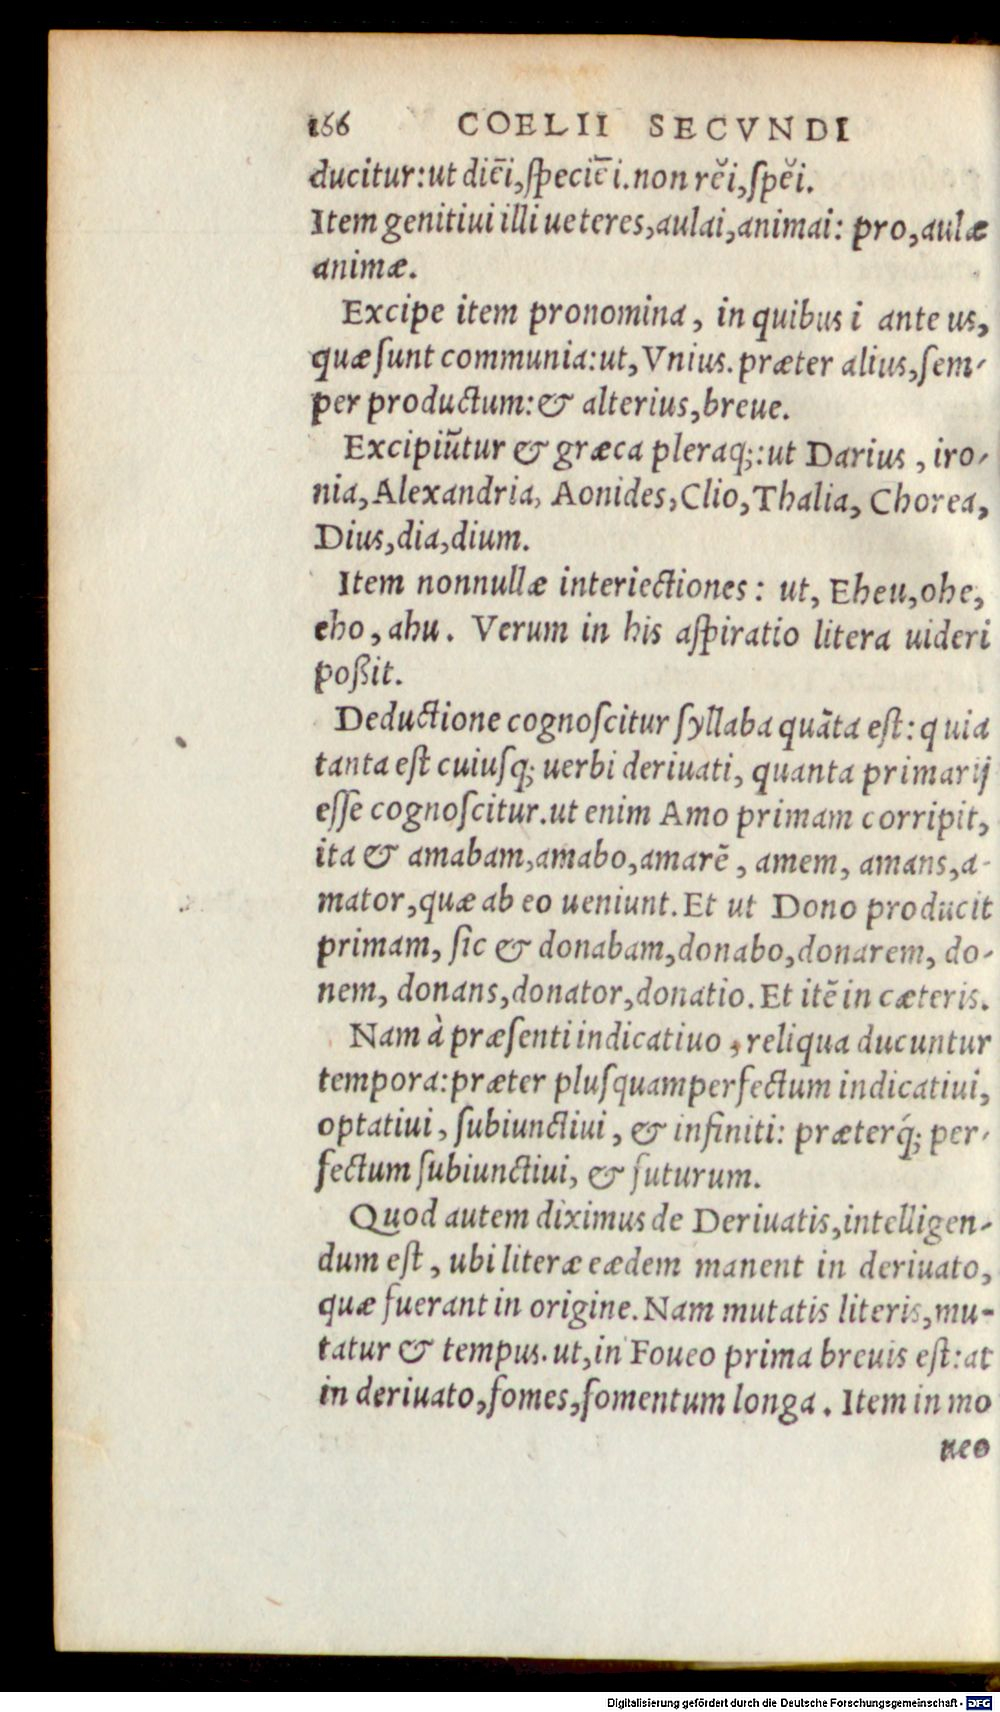 166 COELII SECVNDI
ducitur:ut diēi,ſpeciēi.non rĕi,ſpĕi.
Item genitiui illi ueteres,aulai,animai: pro,aulæ
animæ.
Excipe item pronomina, in quibus i ante us,
quæ ſunt communia:ut, Vnius. præter alius,ſem-
per productum:& alterius,breue.
Excipiūtur & græca pleraq;:ut Darius, iro-
nia, Alexandria, Aonides,Clio,Thalia, Chorea,
Dius,dia,dium.
Item nonnullæ interiectiones: ut, Eheu,ohe,
eho, ahu. Verum in his aſpiratio litera uideri
poßit.
Deductione cognoſcitur ſyllaba quāta eſt: quia
tanta eſt cuiuſq; uerbi deriuati, quanta primarij
eſſe cognoſcitur.ut enim Amo primam corripit,
ita & amabam,amabo,amarē, amem, amans,a-
mator,quæ ab eo ueniunt. Et ut Dono producit
primam, ſic & donabam,donabo,donarem, do-
nem, donans,donator,donatio. Et itē in cæteris.
Nam à præſenti indicatiuo, reliqua ducuntur
tempora:præter pluſquamperfectum indicatiui,
optatiui, ſubiunctiui, & infiniti: præterq́; per-
fectum ſubiunctiui, & futurum.
Quod autem diximus de Deriuatis,intelligen-
dum eſt, ubi literæ eædem manent in deriuato,
quæ fuerant in origine. Nam mutatis literis,mu-
tatur & tempus. ut,in Foueo prima breuis eſt:at
in deriuato,fomes,fomentum longa. Item in mo
neo
Digitalisierung gefördert durch die Deutsche Forschungsgemeinschaft - DFG